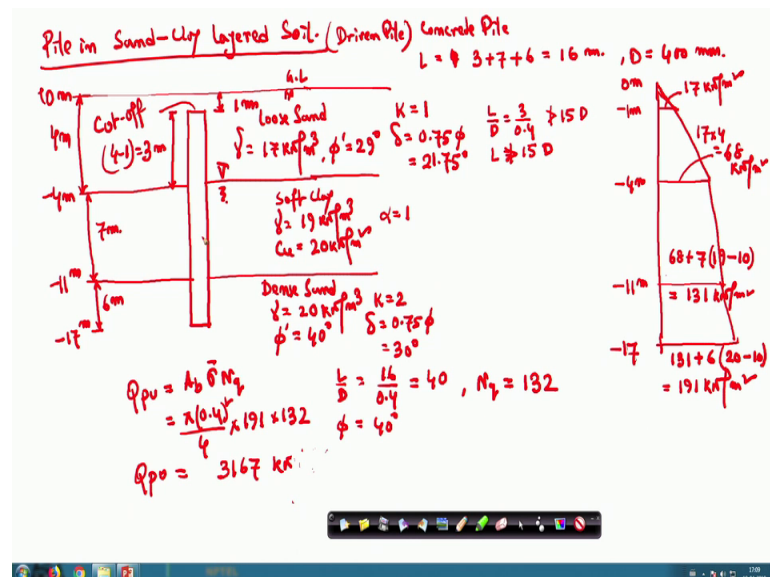 Pile in Sand-Clay Layered Soil. (Driven Pile) Concrete Pile
L = 3+7+6 = 16 m. , D = 400 mm.
G.L
0m
1m
4m
Cut-off
(4-1)=3m
Loose Sand
γ = 17 kN/m³, φ' = 29°
K = 1
δ = 0.75 φ
= 21.75°
L/D = 3/0.4 ≯ 15 D
L ≯ 15 D
-4m
7m.
Soft Clay
γ = 19 kN/m³
Cu = 20 kN/m²
α = 1
-11m
6m
-17m
Dense Sand
γ = 20 kN/m³
φ' = 40°
K = 2
δ = 0.75 φ
= 30°
0m
17 kN/m²
-1m
17×4
= 68
kN/m²
-4m
68+7(19-10)
-11m
= 131 kN/m²
-17
131+6(20-10)
= 191 kN/m²
Qpu = Ab σ̄ Nq
= π(0.4)²/4 × 191 × 132
Qpu = 3167 kN
L/D = 16/0.4 = 40 , Nq = 132
φ = 40°
17:09